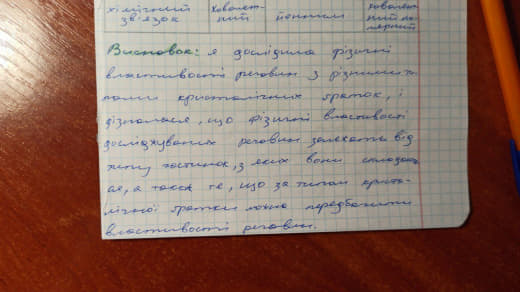 хімічний зв'язок ковалентний йонний ковалентний полярний
Висновок: я дослідила фізичні
властивості речовин з різними ти-
пами кристалічних ґраток, і
дізналася, що фізичні властивості
досліджуваних речовин залежать від
типу частинок, з яких вони складають-
ся, а також те, що за типом криста-
лічної ґратки можна передбачити
властивості речовин.